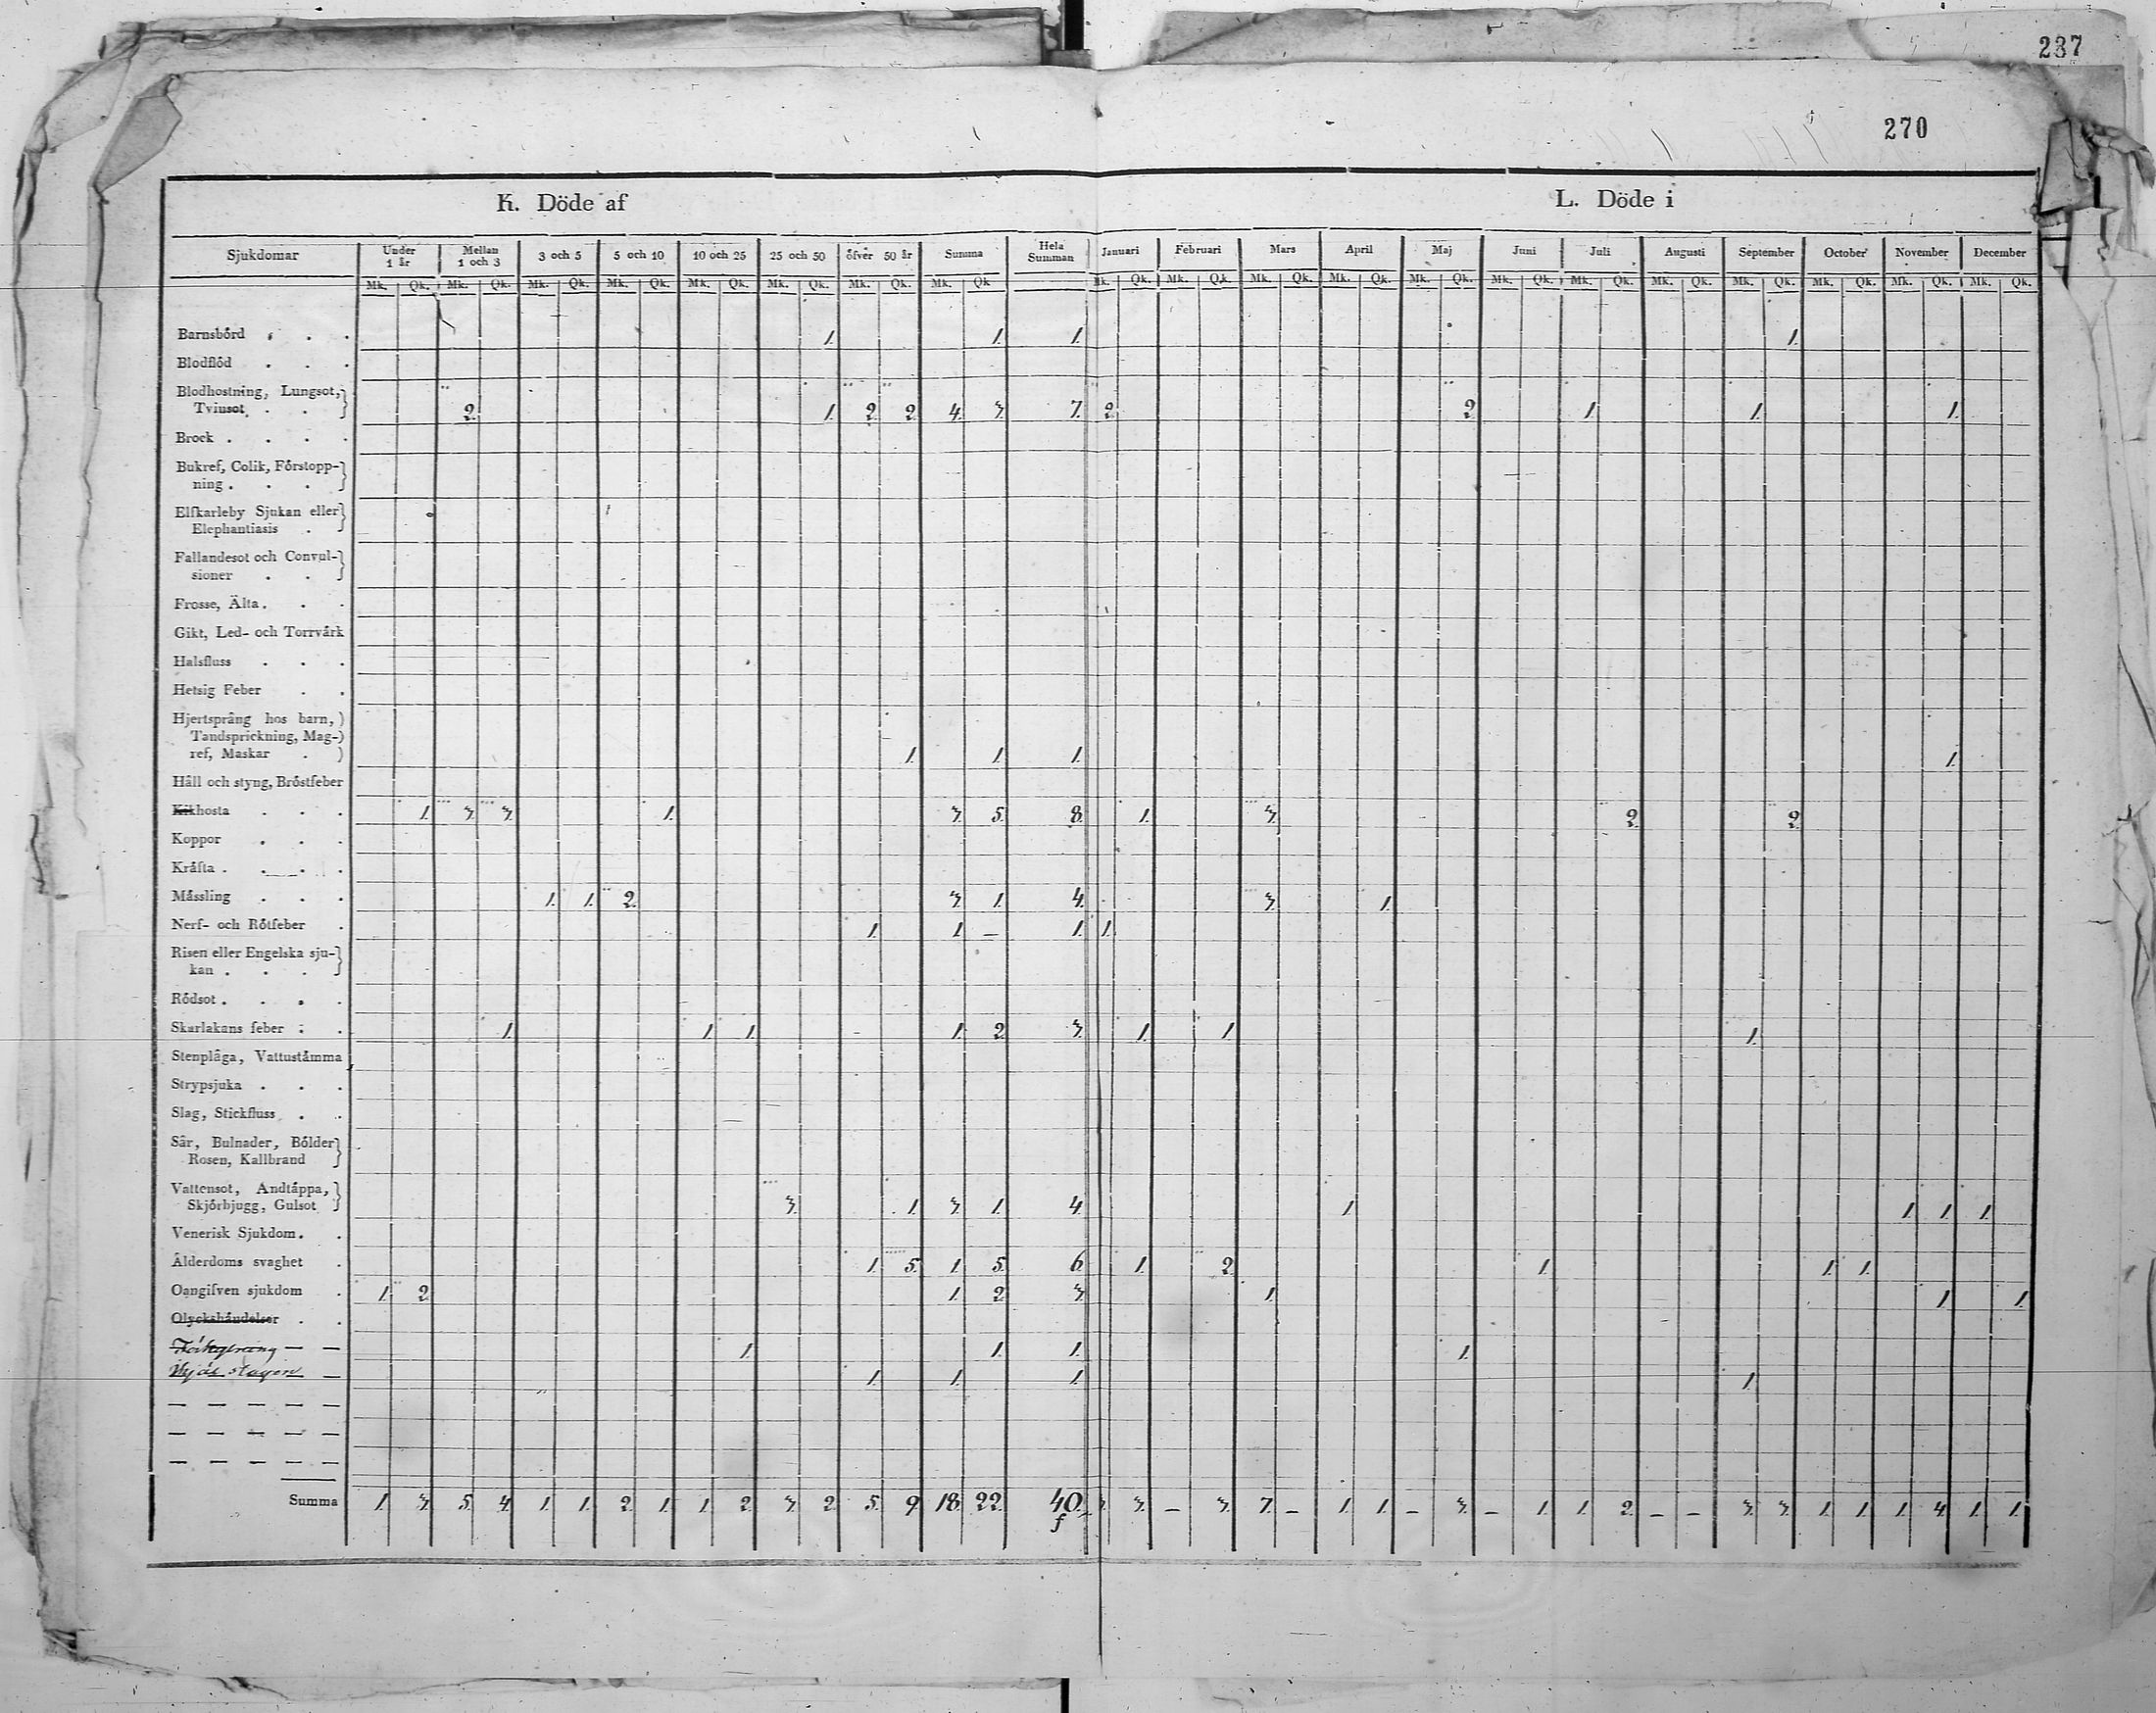 237
270
K. Döde af L. Döde i
Sjukdomar Under 1 år Mellan 1 och 3 3 och 5 5 och 10 10 och 25 25 och 50 öfver 50 år Summa Hela Summan Januari Februari Mars April Maj Juni Juli Augusti September October November December
Mk. Qk. Mk. Qk. Mk. Qk. Mk. Qk. Mk. Qk. Mk. Qk. Mk. Qk. Mk. Qk Mk. Qk. Mk. Qk. Mk. Qk. Mk. Qk. Mk. Qk. Mk. Qk. Mk. Qk. Mk. Qk. Mk. Qk. Mk. Qk. Mk. Qk. Mk. Qk.
Barnsbörd . . . 1. 1. 1. 1.
Blodflöd . . .
Blodhostning, Lungsot,
Tvinsot . . 2. 1. 2. 2. 4. 3. 7. 2. 2. 1. 1. 1.
Brock . . . .
Bukref, Colik, Förstopp-
ning . . .
Elfkarleby Sjukan eller
Elephantiasis .
Fallandesot och Convul-
sioner . .
Frosse, Älta . . .
Gikt, Led- och Torrvärk
Halsfluss . . .
Hetsig Feber . .
Hjertsprång hos barn,
Tandsprickning, Mag-
ref, Maskar . 1. 1. 1. 1.
Håll och styng, Bröstfeber
Kikhosta . . . 1. 3. 3. 1. 3. 5. 8. 1. 3. 2. 2.
Koppor . . .
Kräfta . . . .
Mässling . . . 1. 1. 2. 3. 1. 4. 3. 1.
Nerf- och Rötfeber . 1. 1. – 1. 1.
Risen eller Engelska sju-
kan . . .
Rödsot . . . .
Skarlakans feber . . 1. 1. 1. 1. 2. 3. 1. 1. 1.
Stenplåga, Vattustämma
Strypsjuka . . .
Slag, Stickfluss . .
Sår, Bulnader, Bölder
Rosen, Kallbrand
Vattensot, Andtäppa,
Skjörbjugg, Gulsot 3. 1. 3. 1. 4. 1. 1. 1. 1.
Venerisk Sjukdom . .
Ålderdoms svaghet . 1. 5. 1. 5. 6. 1. 2. 1. 1. 1.
Oangifven sjukdom . 1. 2. 1. 2. 3. 1. 1. 1.
Olyckshändelser . .
— — 1. 1. 1. 1.
— 1. 1. 1. 1.
— — — — —
— — — — —
— — — — —
Summa 1. 3. 5. 4. 1. 1. 2. 1. 1. 2. 3. 2. 5. 9. 18. 22. 40. 3. 3. – 3. 7. – 1. 1. – 3. – 1. 1. 2. – – 3. 3. 1. 1. 1. 4. 1. 1.